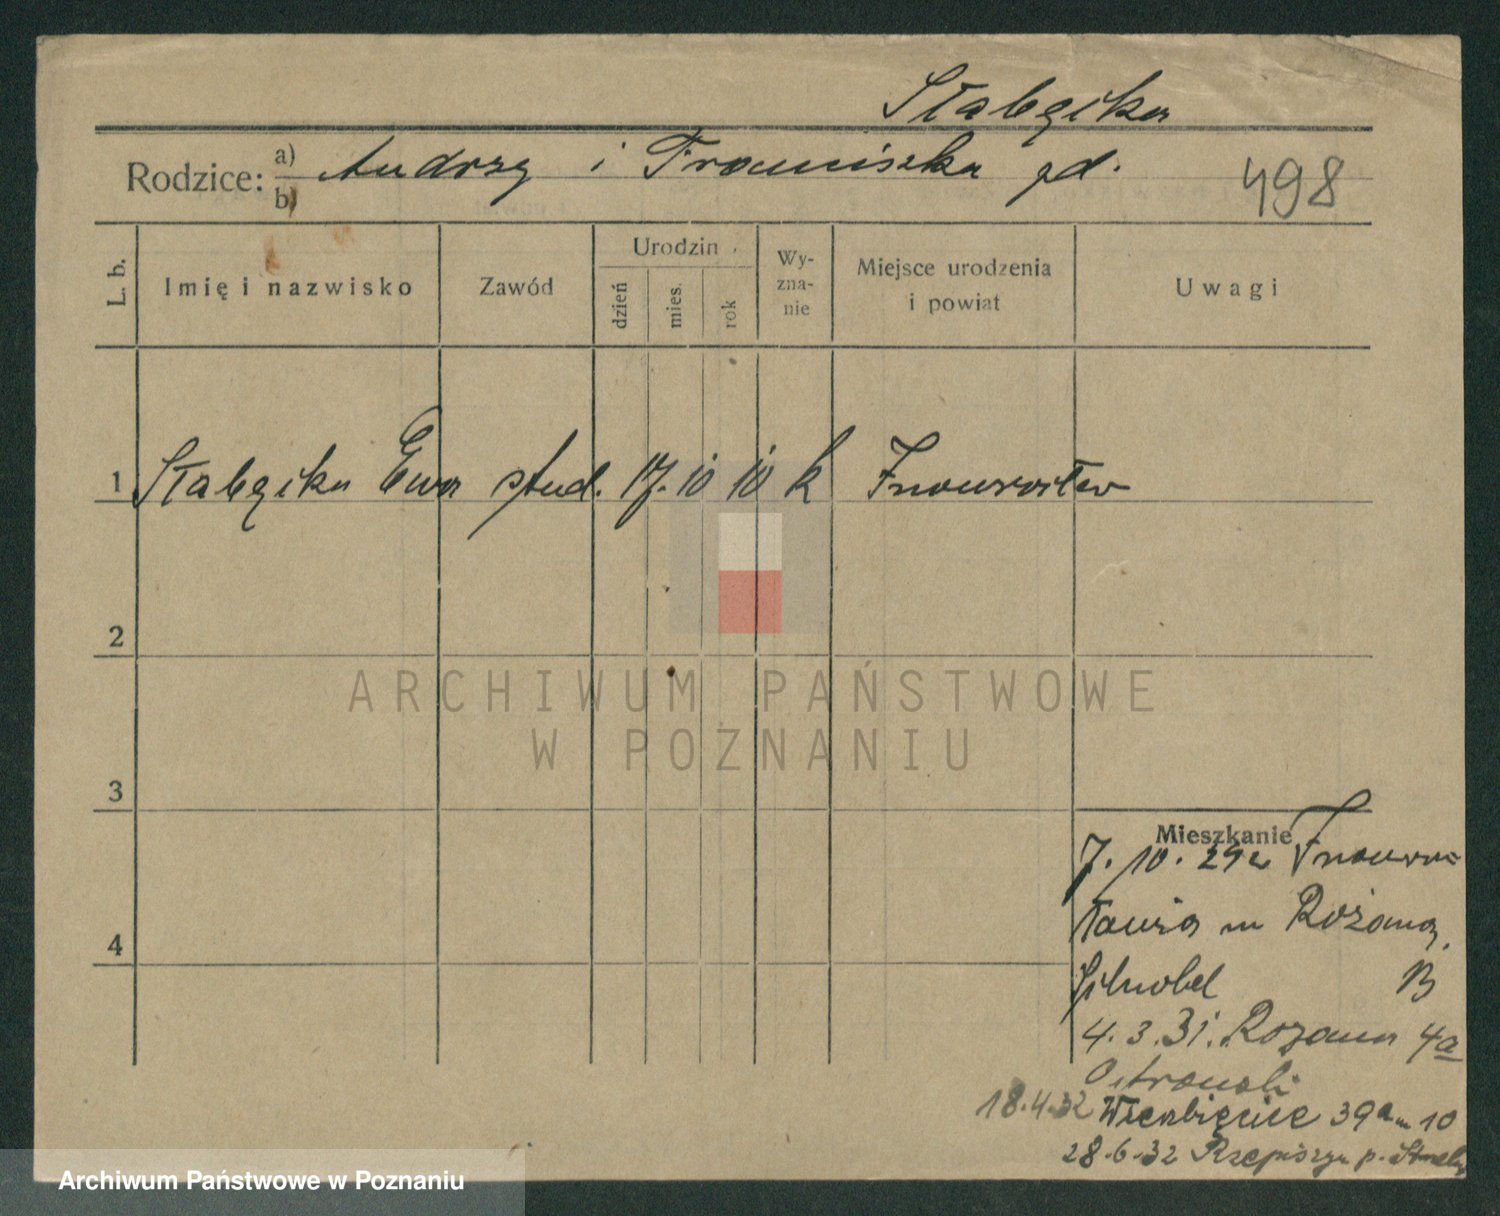 Słabęcka
Rodzice: a) Andrzej i Franciszka zd. 498
b)
L. b. Imię i nazwisko Zawód Urodzin dzień mies. rok Wyznanie Miejsce urodzenia i powiat Uwagi
1 Słabęcka Ewa stud. 17. 10 10 k Inowrocław
2
ARCHIWUM PAŃSTWOWE
W POZNANIU
3
Mieszkanie
7. 10. 29 z Inowro-
cławia Różana
4
B
4. 3. 31. Rozana 4a
Ostrowski
18.4.32 Wierzbięcice 39a m 10
28.6.32 p.
Archiwum Państwowe w Poznaniu